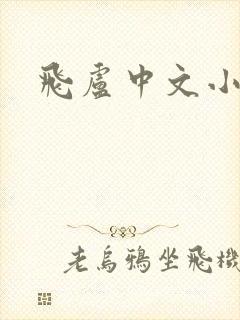 飛盧中文小
老烏鴉坐飛機